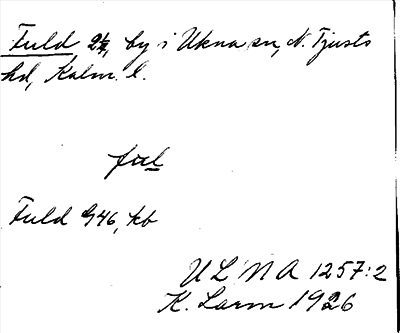 Fuld 2¼, by i Ukna sn, N. Tjusts
hd, Kalm. l.
ful
Fuld 946, kb
ULMA 1257:2
K. Larm 1926